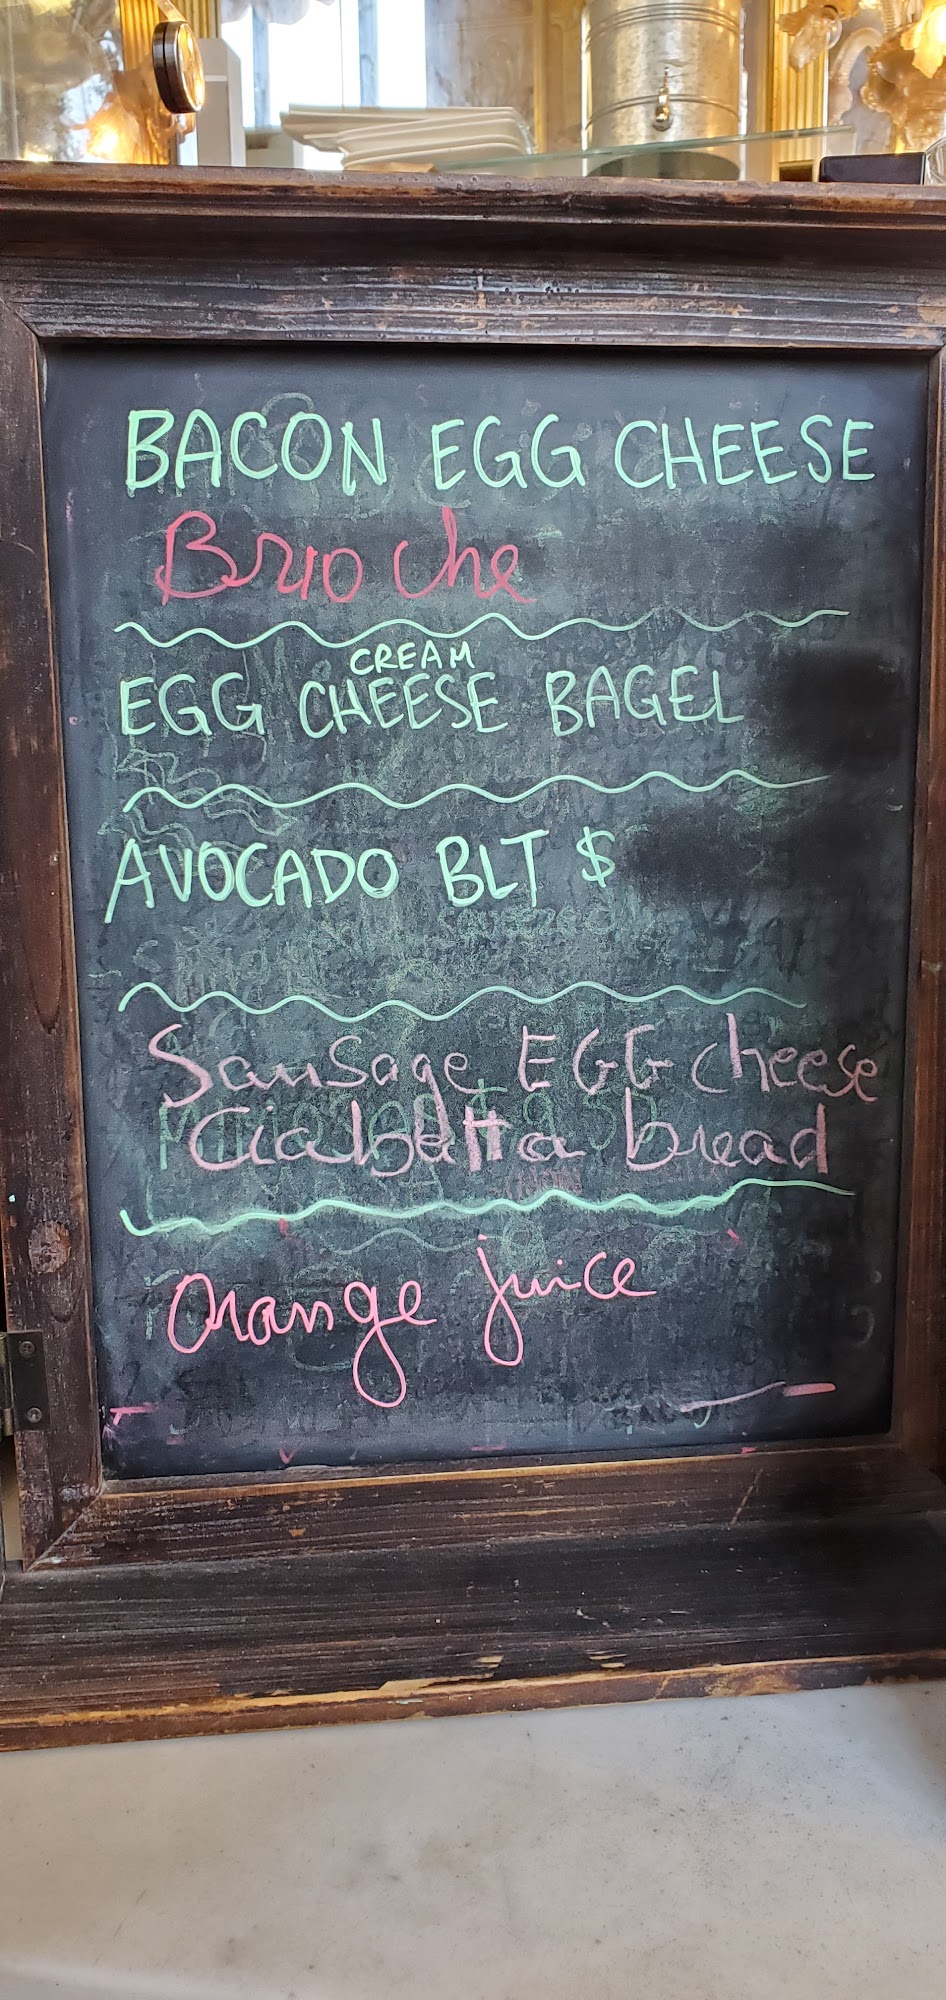 BACON EGG CHEESE
Brioche
CREAM
EGG CHEESE BAGEL
AVOCADO BLT $
Sausage EGG cheese
Ciabatta bread
Orange juice